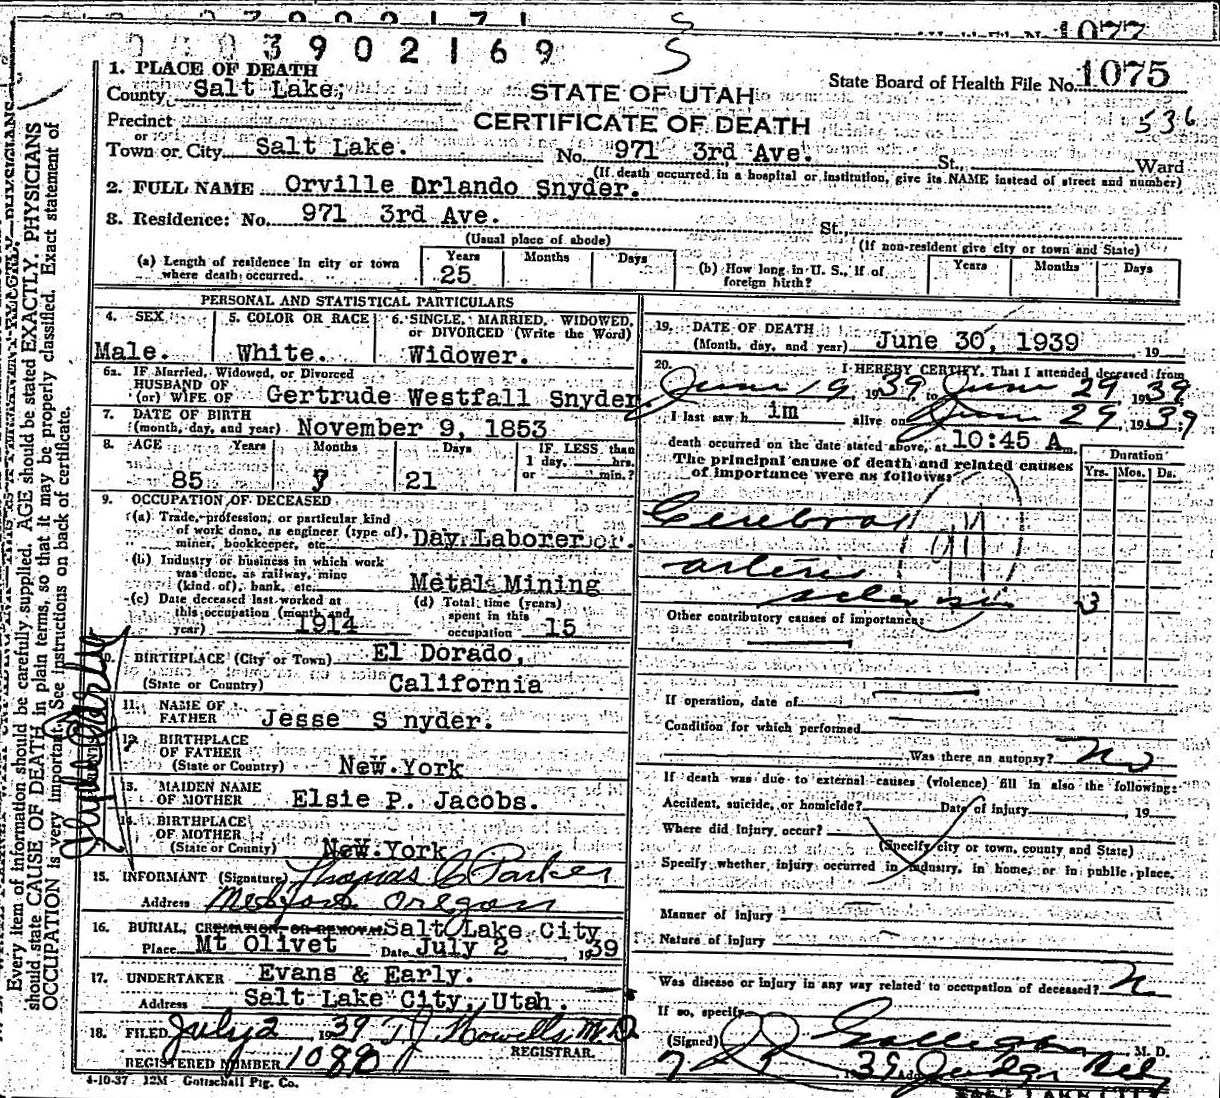 1077
0003902169 S
S
State Board of Health File No. 1075
536
STATE OF UTAH
CERTIFICATE OF DEATH
1. PLACE OF DEATH
County Salt Lake.
Precinct
or
Town or City Salt Lake. No. 971 3rd Ave. St. Ward
(If death occurred in a hospital or institution, give its NAME instead of street and number)
2. FULL NAME Orville Orlando Snyder.
3. Residence: No. 971 3rd Ave. St.
(Usual place of abode) (If non-resident give city or town and State)
(a) Length of residence in city or town where death occurred. Years 25 Months Days
(b) How long in U. S., if of foreign birth? Years Months Days
PERSONAL AND STATISTICAL PARTICULARS
4. SEX Male.
5. COLOR OR RACE White.
6. SINGLE, MARRIED, WIDOWED, or DIVORCED (Write the Word) Widower.
6a. IF Married, Widowed, or Divorced
HUSBAND OF
(or) WIFE OF Gertrude Westfall Snyder.
7. DATE OF BIRTH
(month, day, and year) November 9, 1853
8. AGE Years 85 Months 7 Days 21 IF LESS than 1 day, hrs. or min.?
9. OCCUPATION OF DECEASED
(a) Trade, profession, or particular kind
of work done, as engineer (type of),
miner, bookkeeper, etc. Day Laborer
(b) Industry or business in which work
was done, as railway, mine
(kind of), bank, etc. Metal Mining
(c) Date deceased last worked at
this occupation (month and
year) 1914
(d) Total time (years)
spent in this
occupation 15
BIRTHPLACE (City or Town) El Dorado,
(State or Country) California
11. NAME OF
FATHER Jesse S nyder.
12. BIRTHPLACE
OF FATHER
(State or Country) New York
13. MAIDEN NAME
OF MOTHER Elsie P. Jacobs.
14. BIRTHPLACE
OF MOTHER
(State or Country) New York
15. INFORMANT (Signature) Thomas C Parker
Address Medford Oregon
16. BURIAL, CREMATION, OR REMOVAL Salt Lake City
Place Mt Olivet Date July 2 1939
17. UNDERTAKER Evans & Early.
Address Salt Lake City, Utah.
18. FILED July 2 1939 T J Howells M.D
REGISTRAR.
REGISTERED NUMBER 1080
4-10-37 12M Gottschall Ptg. Co.
19. DATE OF DEATH
(Month, day, and year) June 30, 1939 19
20. I HEREBY CERTIFY, That I attended deceased from
June 19 1939 to June 29 1939
I last saw h im alive on June 29 1939
death occurred on the date stated above, at 10:45 A m.
The principal cause of death and related causes
of importance were as follows:
Duration
Yrs. Mos. Ds.
Cerebral
arterio
sclerosis 3
Other contributory causes of importance:
If operation, date of
Condition for which performed
Was there an autopsy? No
If death was due to external causes (violence) fill in also the following:
Accident, suicide, or homicide? Date of injury 19
Where did injury occur?
(Specify city or town, county and State)
Specify whether injury occurred in industry, in home, or in public place.
Manner of injury
Nature of injury
Was disease or injury in any way related to occupation of deceased? N
If so, specify
(Signed) Galligan M. D.
39 Judge Bld
SALT LAKE CITY
Every item of information should be carefully supplied. AGE should be stated EXACTLY. PHYSICIANS
should state CAUSE OF DEATH in plain terms, so that it may be properly classified. Exact statement of
OCCUPATION is very important. See instructions on back of certificate.